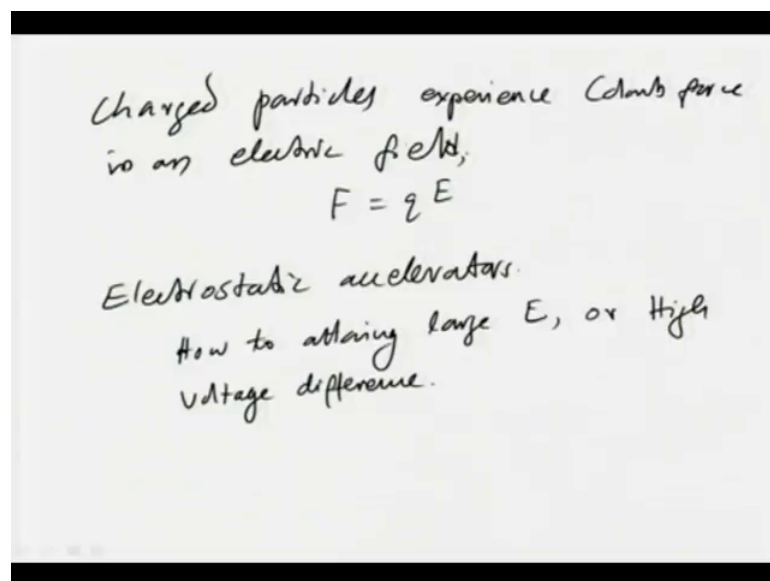 Charged particles experience Coulomb force
in an electric field,
F = q E
Electrostatic accelerators.
How to attaining large E, or High
voltage difference.